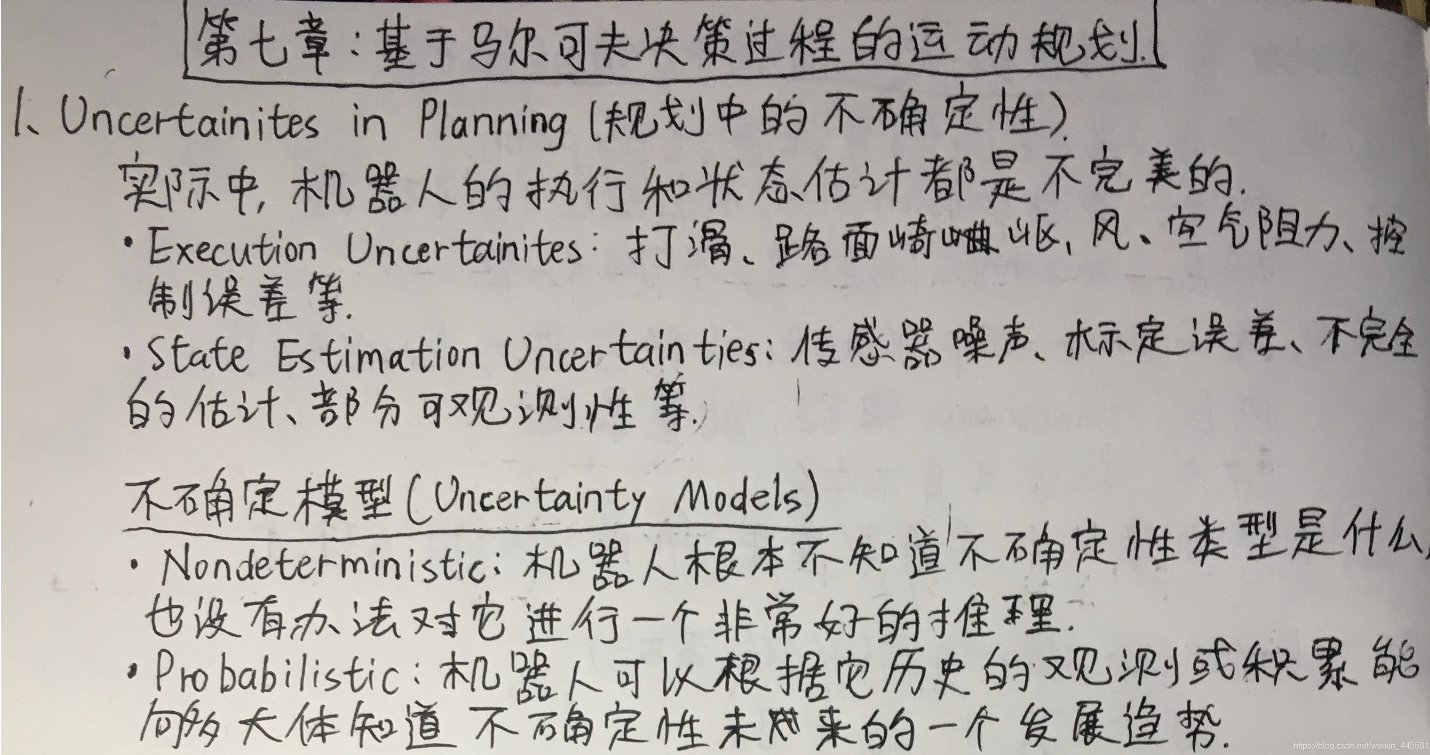 第七章:基于马尔可夫决策过程的运动规划.
1、Uncertainites in Planning (规划中的不确定性).
实际中, 机器人的执行和状态估计都是不完美的.
·Execution Uncertainites: 打滑、路面崎岖、风、空气阻力、控
制误差等.
·State Estimation Uncertainties: 传感器噪声、标定误差、不完全
的估计、部分可观测性等.
不确定模型(Uncertainty Models)
·Nondeterministic: 机器人根本不知道不确定性类型是什么,
也没有办法对它进行一个非常好的推理.
·Probabilistic: 机器人可以根据它历史的观测或积累能
够大体知道不确定性未来的一个发展趋势.
https://blog.csdn.net/weixin_445581